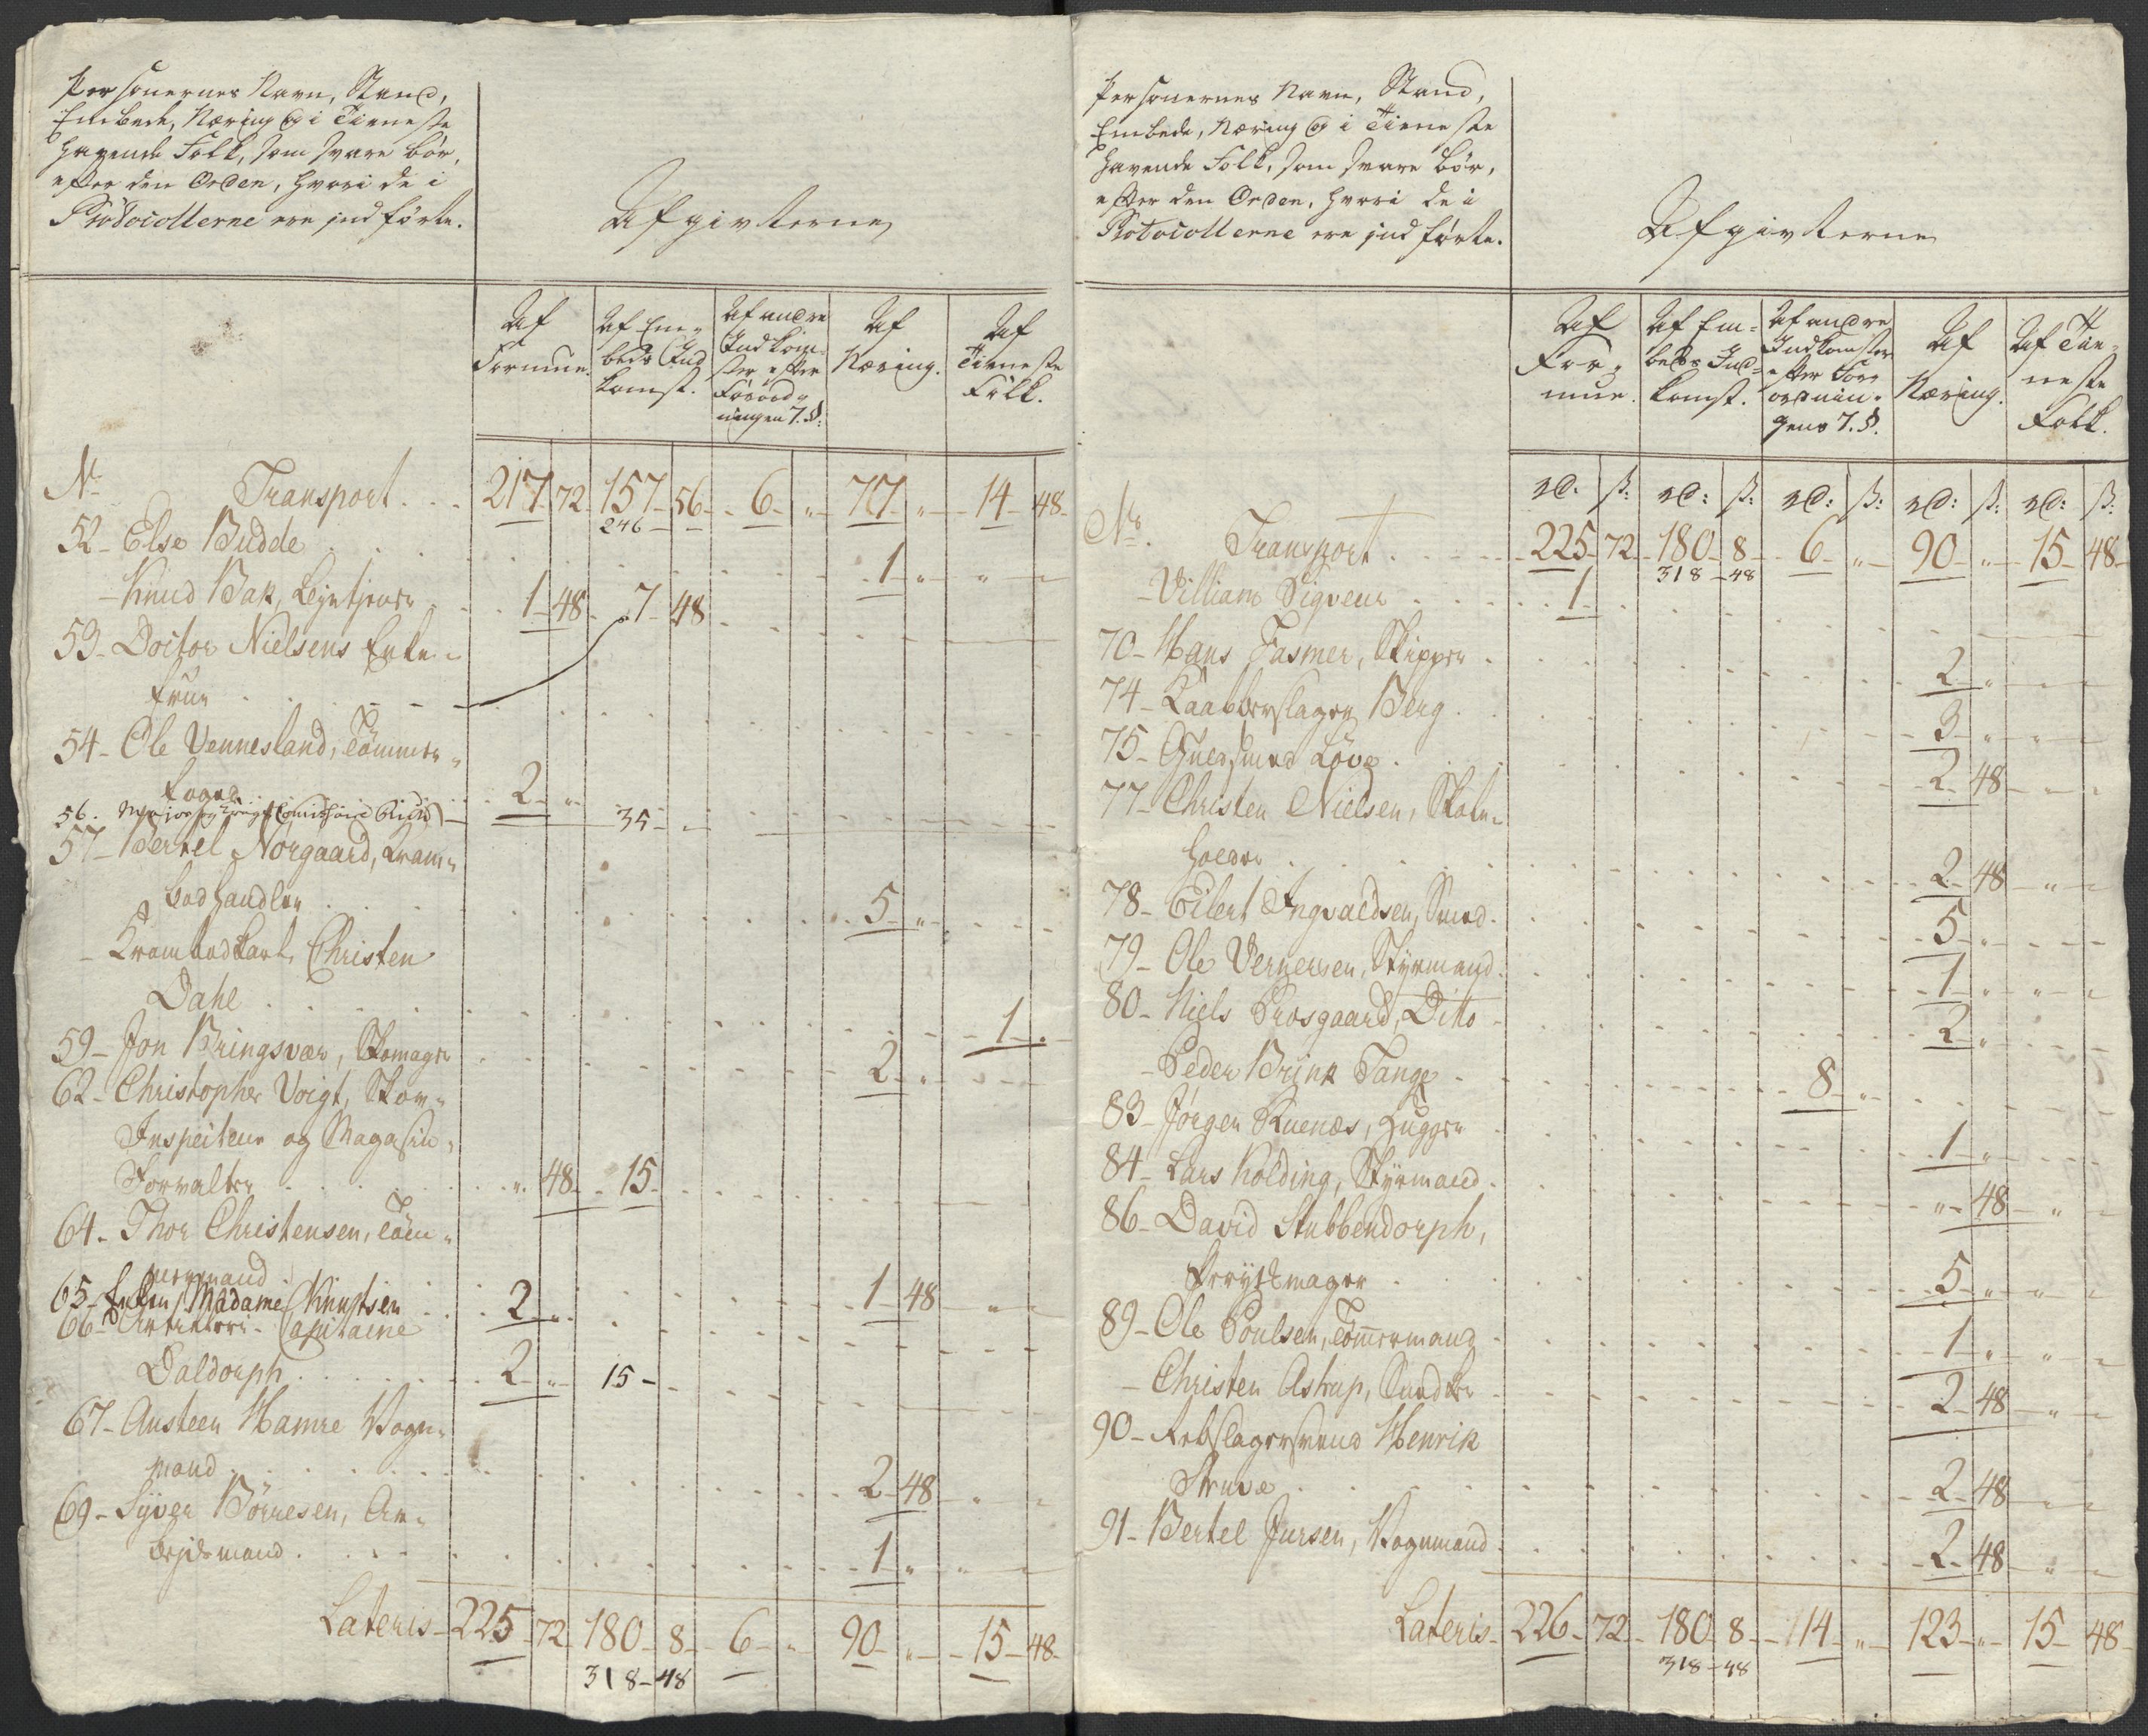 Personernes Navn, Stand,
Embede, Næring og i Tieneste
havende Folk, som svare bør,
efter den Orden, hvori de i
Protocollerne ere indførte.
Afgivterne
Af Formue.
Af Embeds Indkomst.
Af andre Indkomster efter Forordningen 7. §.
Af Næring.
Af Tieneste Folk.
No Transport . . . 217 72 157 56 6 " 77 " 14 48
246
52 - Else Budde . . . 1 " " "
- Knud Bak, . . . 1 48 7 48
53 - Doctor Nielsens Enke-
frue . . .
54 - Ole Vennesland, Tømmer-
foged . . . 2 "
56. Major og Krigs Comissaire 35 "
57 - Bertel Norgaard, Kram-
bodhandler . . . 5 "
- Krambodkarl, Christen
Dahl . . . 1 "
59 - Jon Bringsvær, Skomager 2 "
62 - Christopher Voigt, Skov-
Inspecteur og Magasin-
Forvalter . . . " 48 15
64 - Thor Christensen, Tøm-
mermand . . . 1 48 " "
65 - Enken Madame Knudtsen . . . 2 "
66 - Artilleri-Capitaine
Daldorph . . . 2 " 15 -
67 - Austeen Hamre Vogn-
mand . . . 2 48 " "
69 - Syver Børresen, Ar-
bejdsmand . . . 1 " "
Lateris - 225 72 180 8 6 " 90 " 15 48
318 - 48
Personernes Navn, Stand,
Embede, Næring og i Tieneste
havende Folk, som svare bør,
efter den Orden, hvori de i
Protocollerne ere indførte.
Afgivterne
Af Formue.
Af Embeds Indkomst.
Af andre Indkomster efter Forordningens 7. §.
Af Næring.
Af Tieneste Folk.
rd: ß: rd: ß: rd: ß: rd: ß: rd: ß:
No. Transport . . . 225 72 180 8 6 " 90 " 15 48
318 - 48
- Villiam Sigveur . . . 1
70 - Hans Fasmer, Skipper . 2 "
74 - Kaabberslager Berg . 3 " "
75 - Guldsmed Løve . 2 48 "
77 - Christen Nielsen, Skole-
holder . . . 2 48 " "
78 - Eilert Ingvaldsen, Smed . 5 "
79 - Ole Vernersen, Styrmand . 1 " " "
80 - Niels Prosgaard, Ditto - 2 "
- Peder Brink Tange . . . 8 "
83 - Jørgen Knenæs, Hugger . 1 "
84 - Lars Kolding, Styrmand . " 48 " "
86 - David Stubbendorph,
Paryckmager . . . 5 " " "
89 - Ole Poulsen, Tømmermand - 1 " " "
- Christen Astrup, Snedker - 2 48 " "
90 - Rebslagersvend Henrik
Struve . . . 2 48 " "
91 - Bertel Jursen, Vognmand . 2 48 " "
Lateris - 226 72 180 8 14 " 123 " 15 48
318 - 48